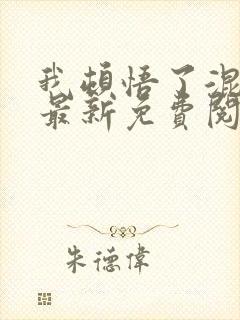 我頓悟了混
最新免費閱
朱德偉